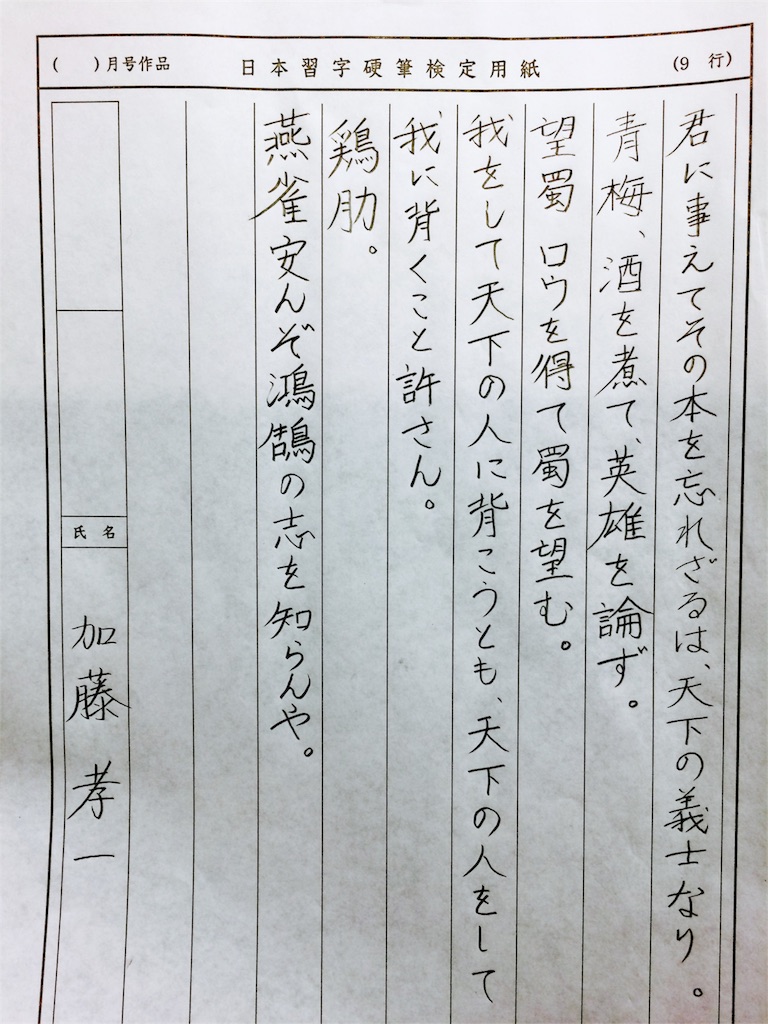 ( )月号作品 日本習字硬筆検定用紙 (9 行)
君に事えてその本を忘れざるは、天下の義士なり。
青梅、酒を煮て、英雄を論ず。
望蜀 ロウを得て蜀を望む。
我をして天下の人に背こうとも、天下の人をして
我に背くこと許さん。
鶏肋。
燕雀安んぞ鴻鵠の志を知らんや。
氏名
加藤 孝一